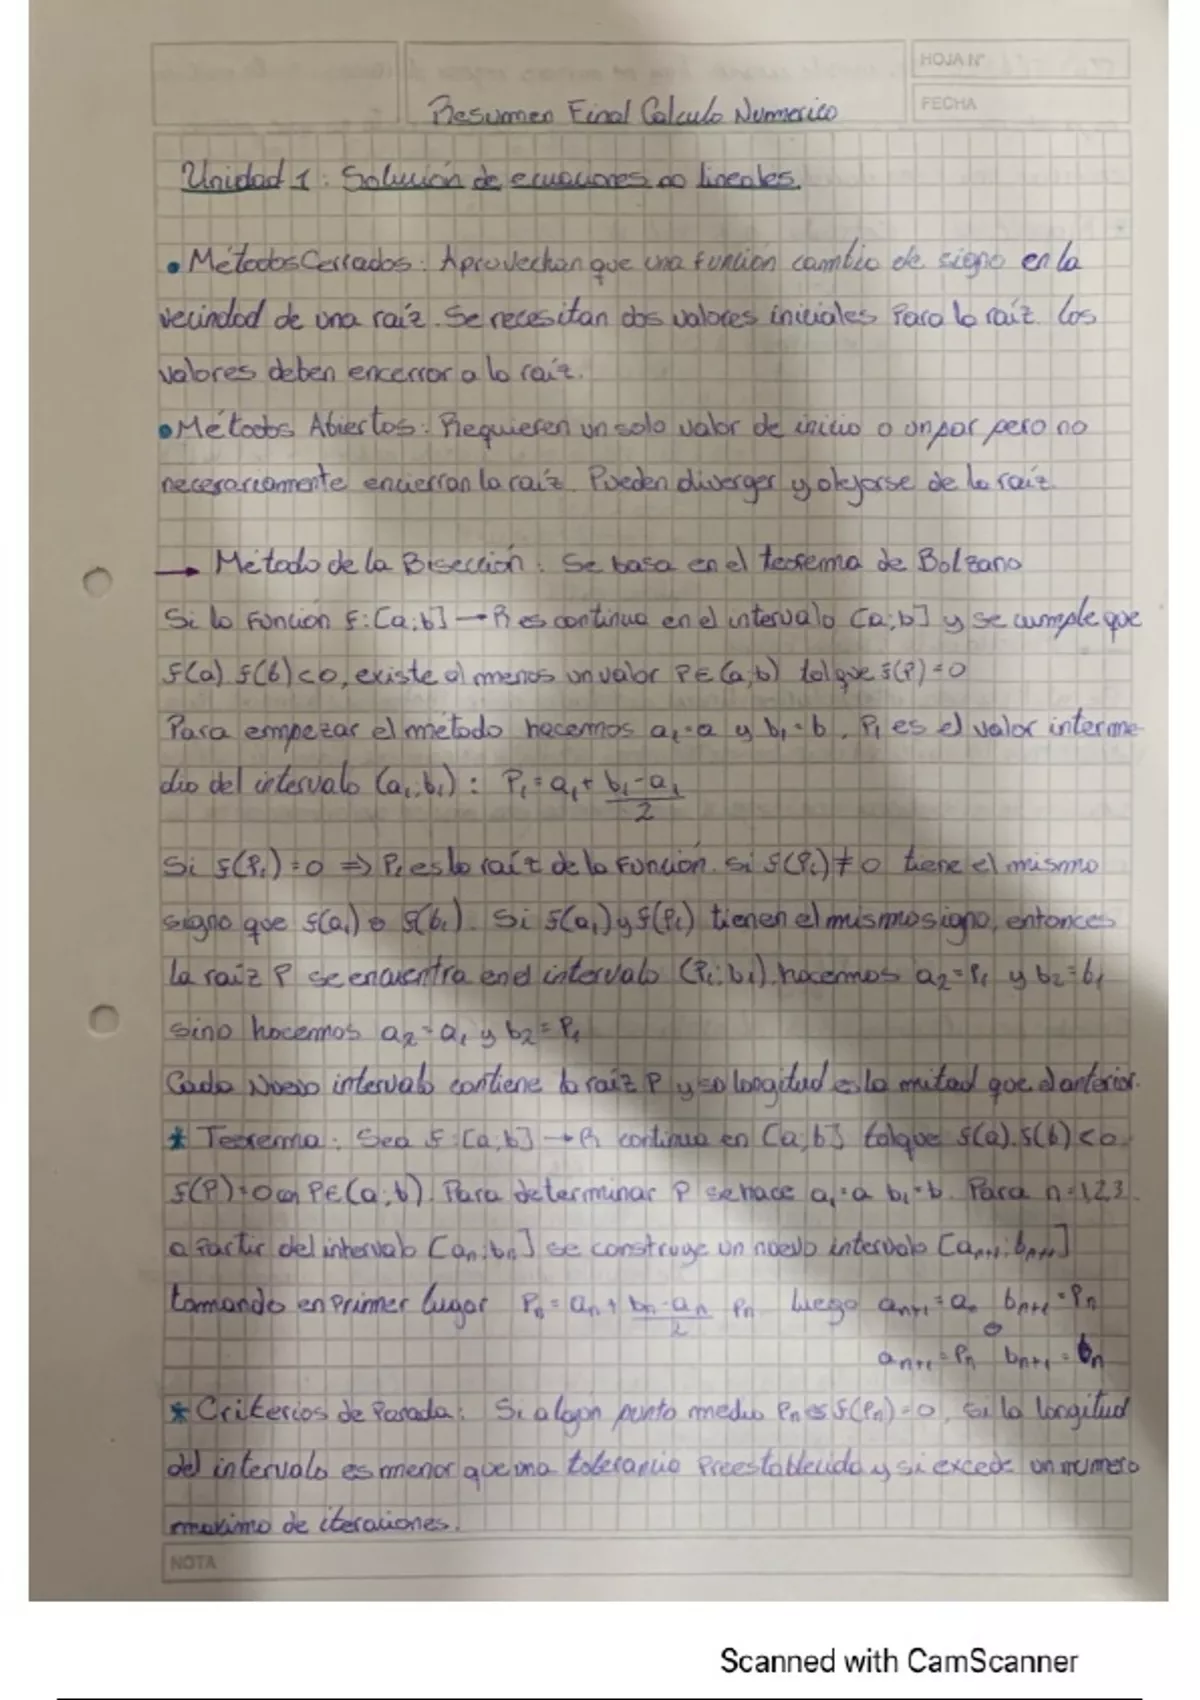 HOJA Nº
FECHA
Resumen Final Calculo Numerico
Unidad 1: Solución de ecuaciones no lineales.
• Métodos Cerrados: Aprovechan que una función cambio de signo en la
vecindad de una raíz. Se necesitan dos valores iniciales Para la raíz. Los
valores deben encerrar a la raíz.
• Métodos Abiertos: Requieren un solo valor de inicio o un par pero no
necesariamente encierran la raíz. Pueden diverger y alejarse de la raíz.
→ Método de la Bisección: Se basa en el teorema de Bolzano
Si la función f: [a;b] → R es continua en el intervalo [a;b] y se cumple que
f(a).f(b)<0, existe al menos un valor P∈(a;b) tal que f(P)=0
Para empezar el método hacemos a₁=a y b₁=b, P₁ es el valor interme-
dio del intervalo (a₁;b₁): P₁ = a₁ + (b₁-a₁)/2
Si f(P₁)=0 ⇒ P₁ es la raíz de la función. Si f(P₁)≠0 tiene el mismo
signo que f(a₁) o f(b₁). Si f(a₁) y f(P₁) tienen el mismo signo, entonces
la raíz P se encuentra en el intervalo (P₁;b₁), hacemos a₂=P₁ y b₂=b₁
sino hacemos a₂=a₁ y b₂=P₁
Cada Nuevo intervalo contiene la raíz P y su longitud es la mitad que el anterior.
* Teorema: Sea f:[a;b] → R continua en [a;b] tal que f(a).f(b)<0.
f(P)=0 con P∈(a;b). Para determinar P se hace a₁=a b₁=b. Para n=1,2,3..
a Partir del intervalo [aₙ;bₙ] se construye un nuevo intervalo [aₙ₊₁;bₙ₊₁]
tomando en Primer lugar Pₙ = aₙ + (bₙ-aₙ)/2 Pₙ Luego aₙ₊₁=aₙ bₙ₊₁=Pₙ
o
aₙ₊₁=Pₙ bₙ₊₁=bₙ
* Criterios de Parada: Si algun punto medio Pₙ es f(Pₙ)=0, si la longitud
del intervalo es menor que una tolerancia Preestablecida y si excede un numero
maximo de iteraciones.
NOTA
Scanned with CamScanner